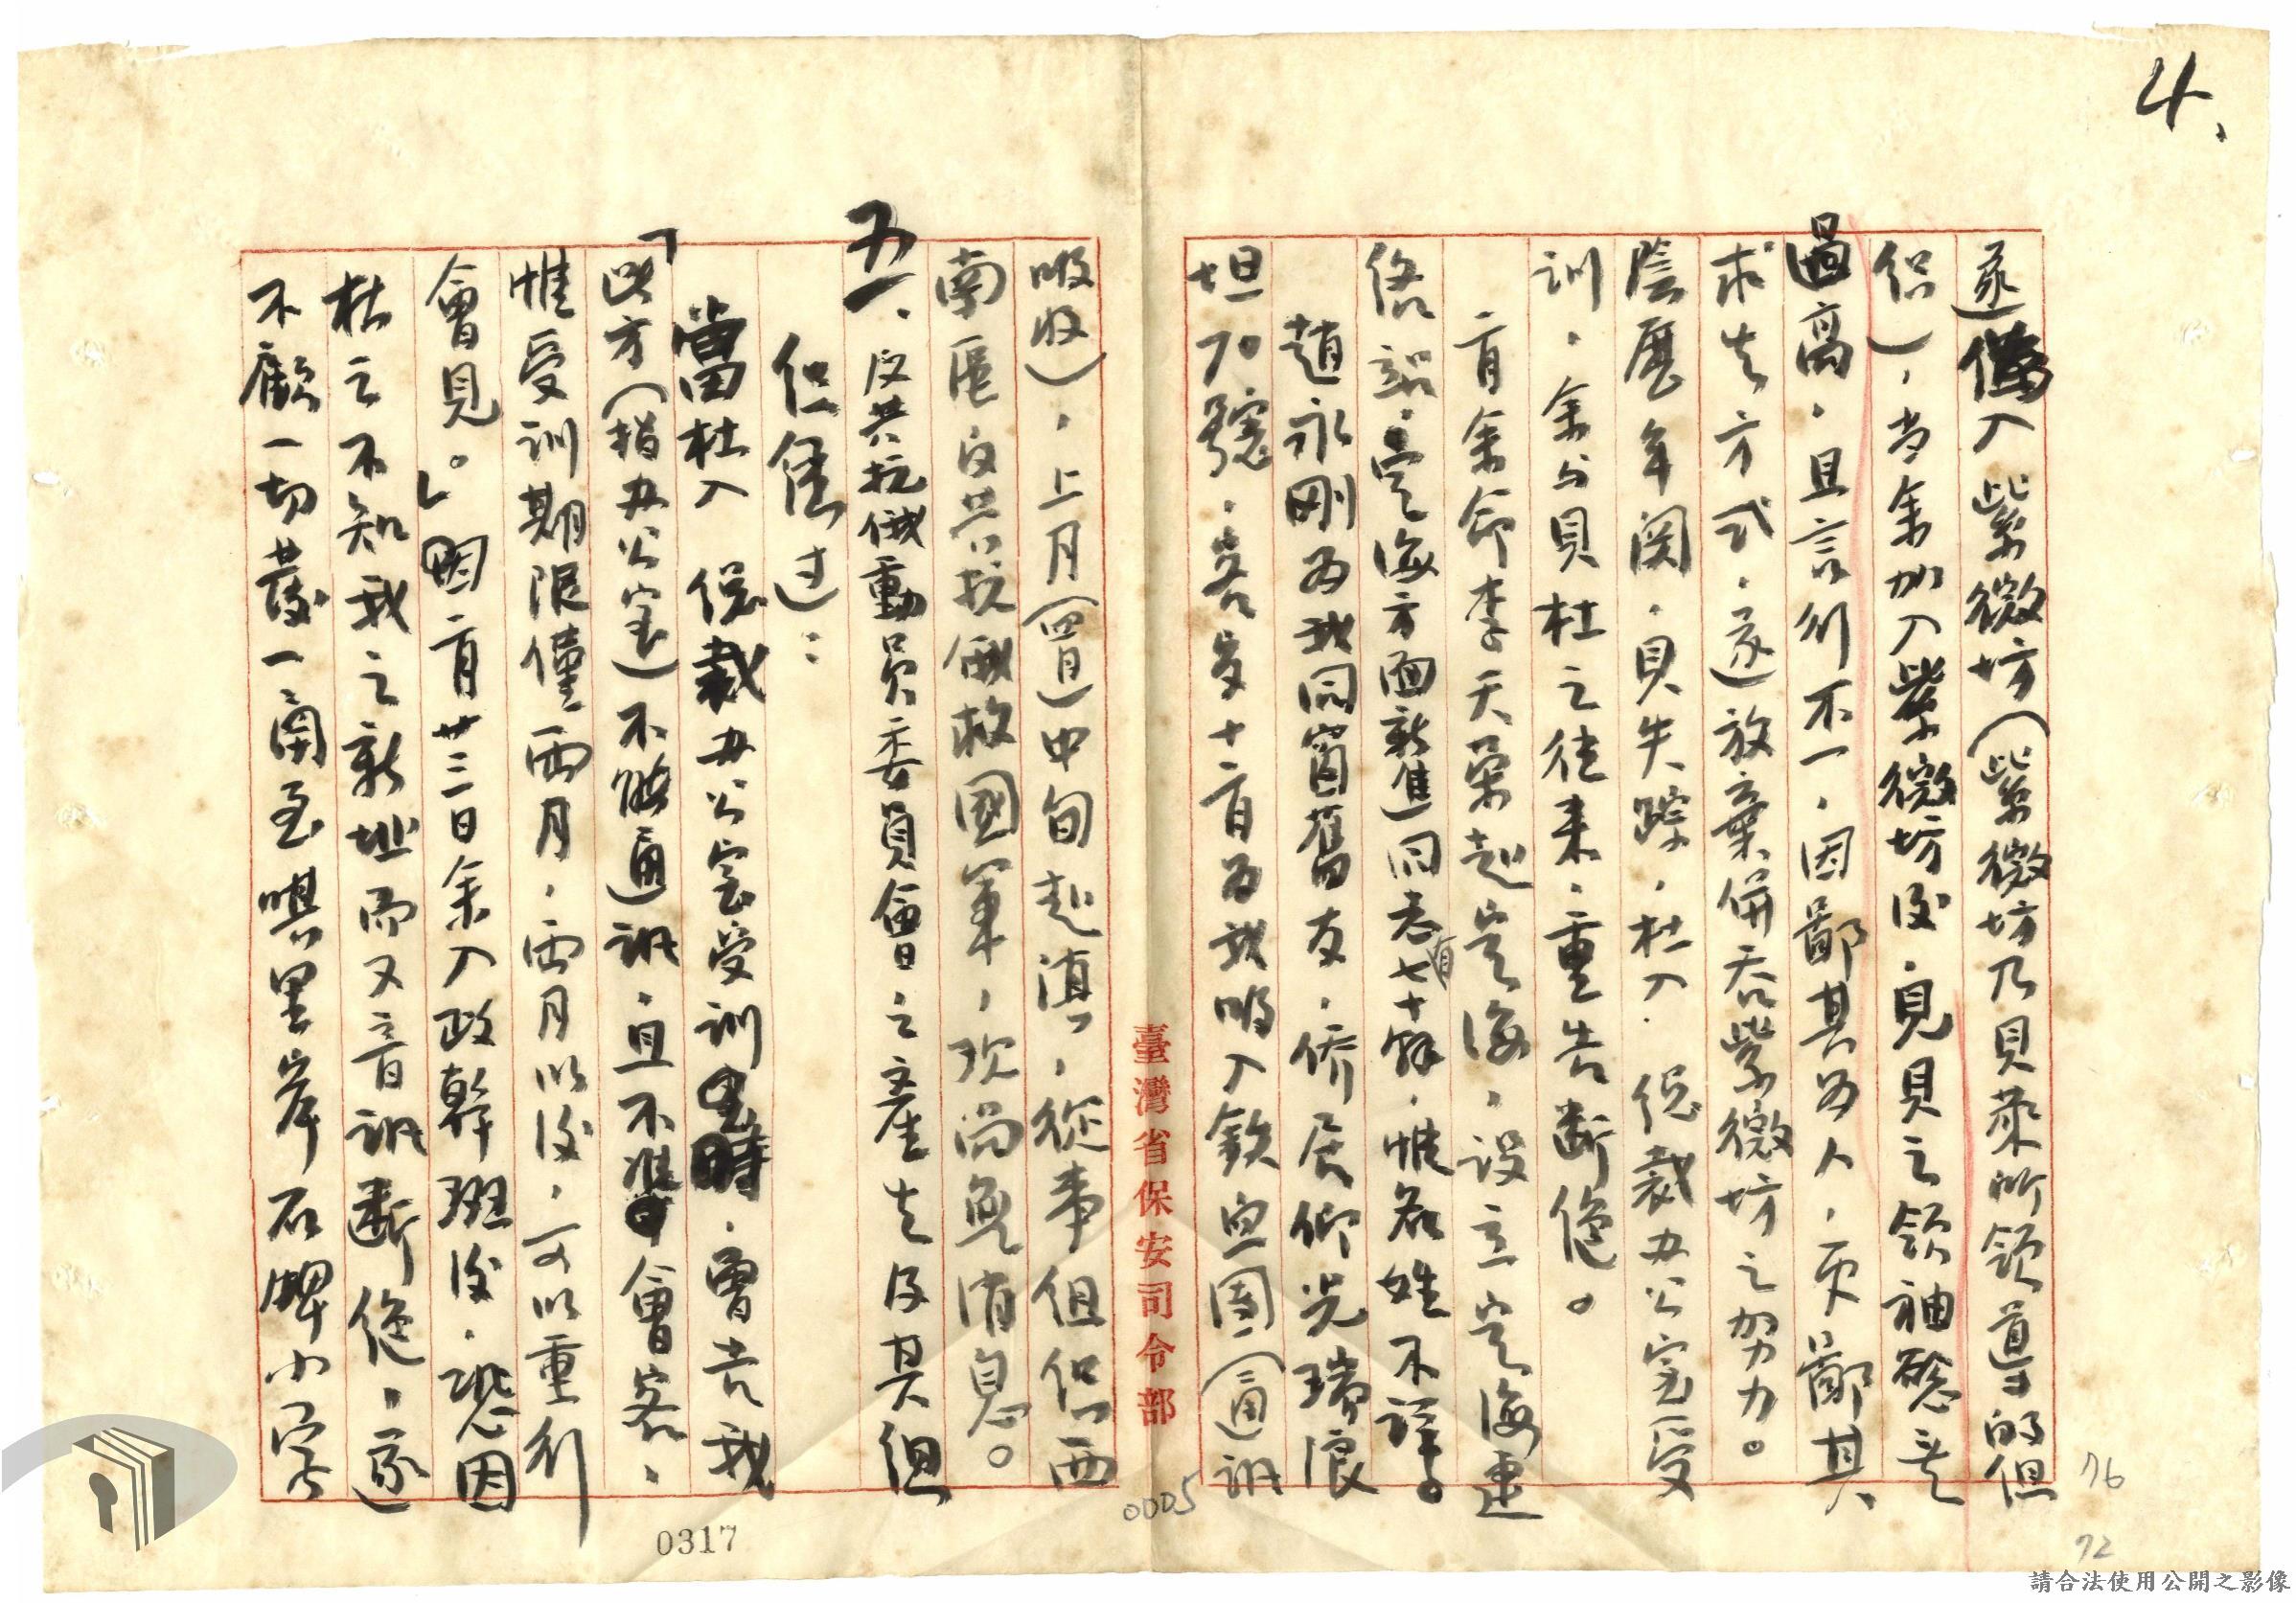 4、
遂偽入紫微坊(紫微坊乃貝萊所領導的組
織),當余加入紫微坊後,見貝之領袖慾之
過高,且言行不一,因鄙其為人,更鄙其
求去方式,遂放棄併吞紫微坊之努力。
陰曆年関,貝失踪,杜入 總裁办公室受
訓,余与貝杜之往来,重告断絕。
二月余命李天榮赴定海,設立定海連
絡站,定海方面新進同志有七十餘,惟名姓不詳。
趙永剛为我同窗舊友,侨居仰光瑞浪
坦70號,客岁十二月为我吸入鉄血團(通訊
吸收),上月(四月)中旬赴滇,從事組织西
南區反共抗俄救國軍,现尚無消息。
五、反共抗俄動員委員會之產生及其組
织経过:
當杜入 總裁办公室受訓時,曾告我
「此方(指办公室)不能通訊,且不準會客,
惟受訓期限僅两月,两月以後,可以重行
會見。」因二月廿三日余入政幹班後,恐因
杜之不知我之新址而又音訊断絕,遂
不顧一切發一函至唭里岸石牌小字
臺灣省保安司令部
0005
0317
76
72
請合法使用公開之影像